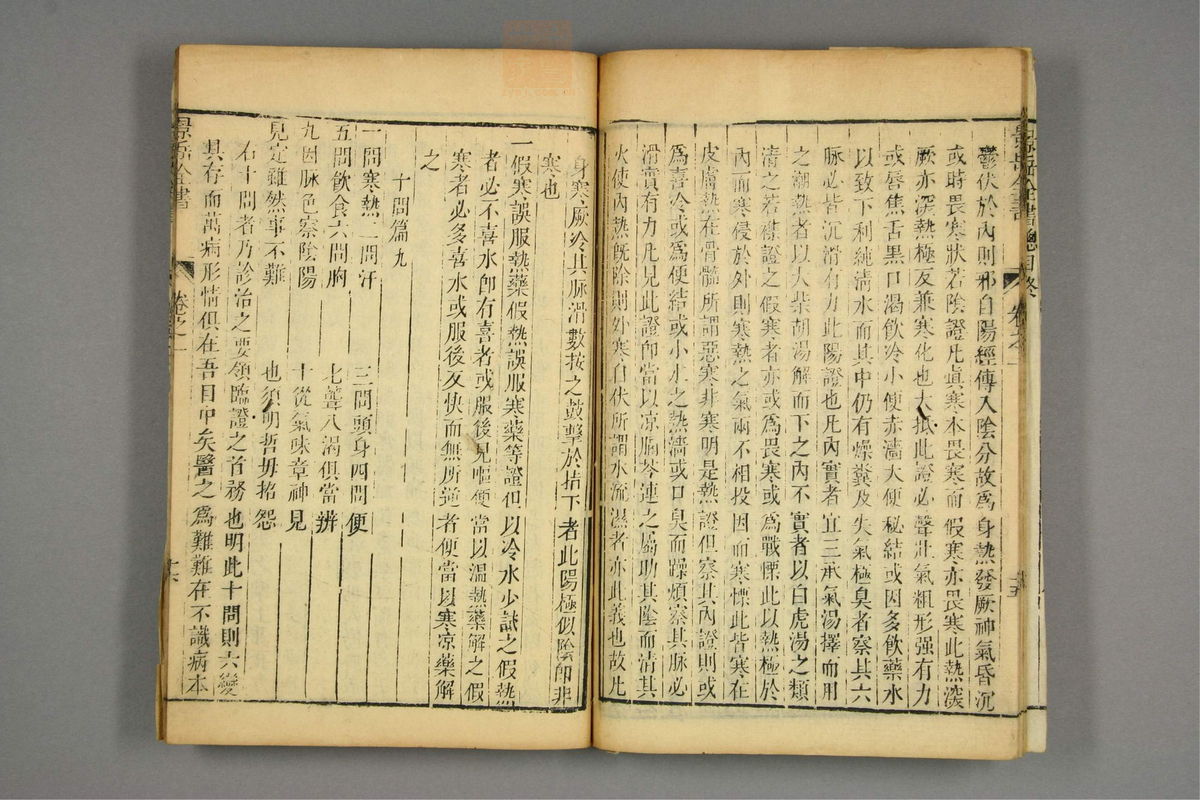 鬱伏於內則邪自陽經傳入陰分故爲身熱發厥神氣昏沉
或時畏寒狀若陰證凡眞寒本畏寒而假寒亦畏寒此熱深
厥亦深熱極反兼寒化也大抵此證必聲壯氣粗形强有力
或唇焦舌黑口渴飲冷小便赤濇大便秘結或因多飲藥水
以致下利純淸水而其中仍有燥糞及失氣極臭者察其六
脉必皆沉滑有力此陽證也凡內實者宜三承氣湯擇而用
之潮熱者以大柴胡湯解而下之內不實者以白虎湯之類
清之若雜證之假寒者亦或爲畏寒或爲戰慄此以熱極於
內而寒侵於外則寒熱之氣兩不相投因而寒慄此皆寒在
皮膚熱在骨髓所謂惡寒非寒明是熱證但察其內證則或
爲喜冷或爲便結或小水之熱濇或口臭而躁煩察其脉必
滑實有力凡見此證即當以凉膈芩連之屬助其陰而清其
火使內熱旣除則外寒自伏所謂水流濕者亦此義也故凡
景岳全書 卷之一 十五
身寒厥冷其脉滑數按之鼓擊於指下者此陽極似陰即非
寒也
一假寒誤服熱藥假熱誤服寒藥等證但以冷水少試之假熱
者必不喜水即有喜者或服後見嘔便當以溫熱藥解之假
寒者必多喜水或服後反快而無所逆者便當以寒凉藥解
之
十問篇九
一問寒熱二問汗 三問頭身四問便
五問飲食六問胸 七聾八渴俱當辨
九因脉色察陰陽 十從氣味章神見
見定雖然事不難 也須明哲毋招怨
右十問者乃診治之要領臨證之首務也明此十問則六變
具存而萬病形情俱在吾目中矣醫之爲難難在不識病本
景岳全書 卷之一 十六